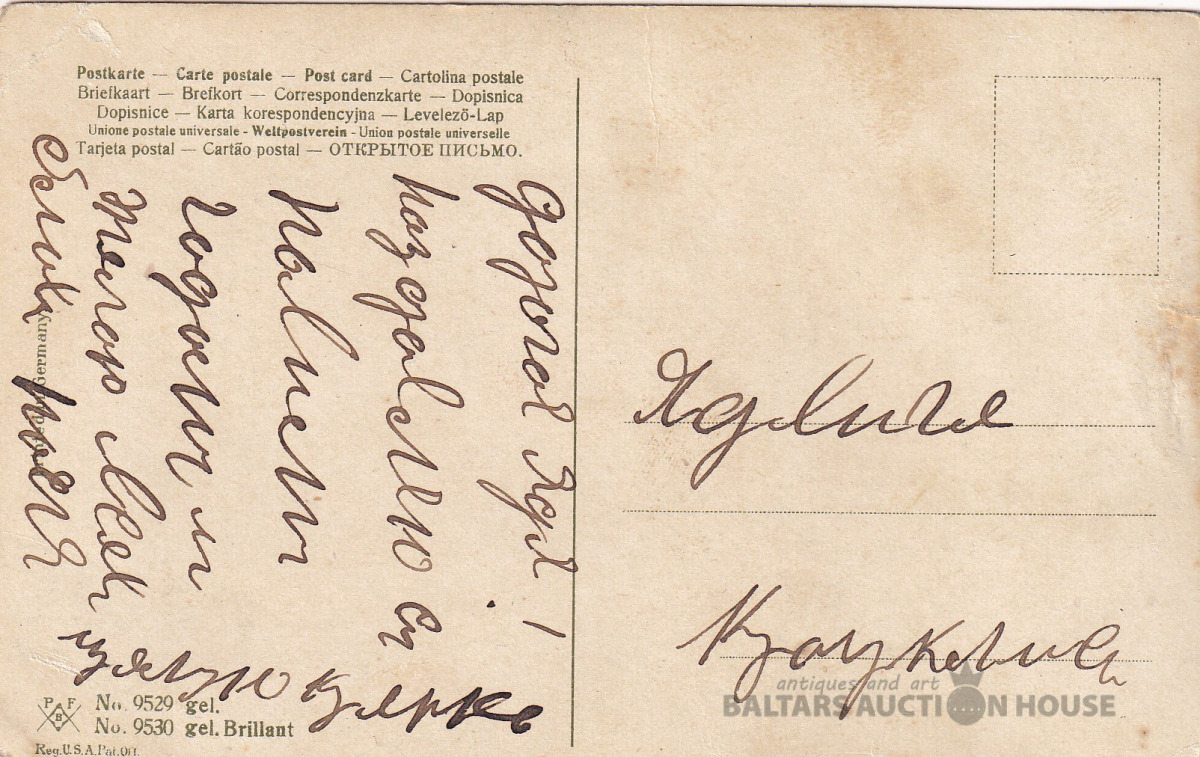 Postkarte — Carte postale — Post card — Cartolina postale
Briefkaart — Brefkort — Correspondenzkarte — Dopisnica
Dopisnice — Karta korespondencyjna — Levelező-Lap
Unione postale universale - Weltpostverein - Union postale universelle
Tarjeta postal — Cartão postal — ОТКРЫТОЕ ПИСЬМО.
дорогая Ядя!
поздравляю с
новыем
годом и
желаю всех
целую
Germany
P F B
No. 9529 gel.
No. 9530 gel. Brillant
Reg. U.S.A. Pat. Off.
Ядвига
antiques and art
BALTARS AUCTION HOUSE